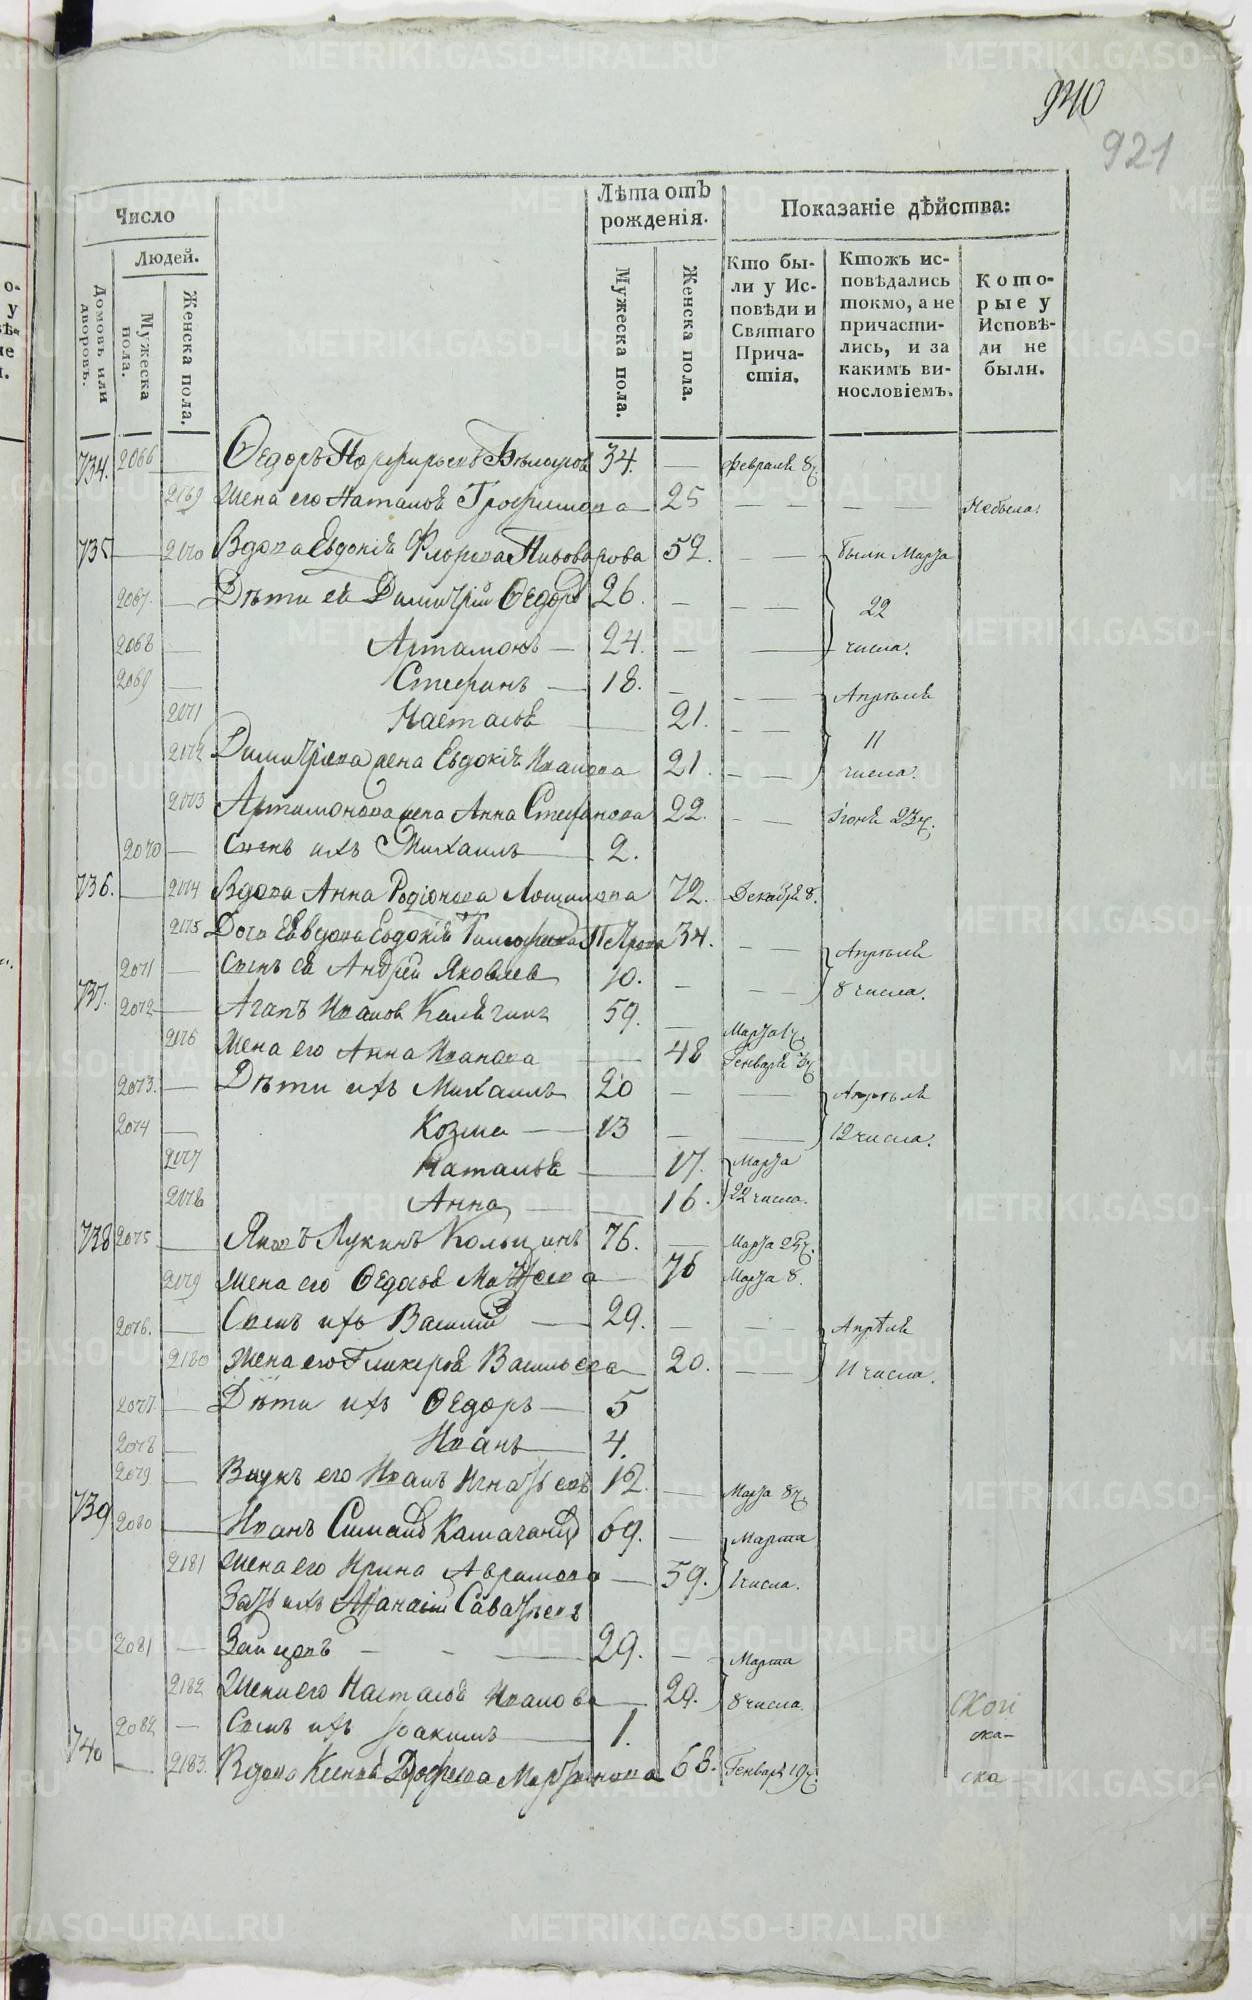 940
921
Число
Людей.
Домовъ или дворовъ.
Мужеска пола.
Женска пола.
Лѣта отъ рожденія.
Мужеска пола.
Женска пола.
Показаніе дѣйства:
Кто бы-
ли у Ис-
повѣди и
Святаго
Прича-
стія.
Ктожъ ис-
повѣдались
токмо, а не
причасти-
лись, и за
какимъ ви-
нословіемъ.
Кото-
рые у
Исповѣ-
ди не
были.
734. 2066 — Ѳедоръ 34. — Февраля 8ч
2169 Жена его Наталья Трофимова — 25 — — — — Небыла.
735 — 2170 Вдова Евдокія Пивоварова 52. — — были Марта
2067. — Дѣти ея Димитрій Ѳедоръ 26. — — — 22
2068 — Артамонъ — 24. — — числа.
2069 — Стефанъ — 18. — — — Апрѣля
2171 Настасья — 21. — — 11
2172 Димитріева жена Евдокія Иванова 21. — — числа.
2173 Артамонова жена Анна Стефанова 22. — — Іюня 23ч.
2070 — Сынъ ихъ Михаилъ — 2.
736. — 2174 Вдова Анна Родіонова 72. Декабря 8.
2175 Дочь ея вдова Евдокія Тимофеева Петрова 34. — — Апрѣля
2071 — Сынъ ея Андрей Яковлев 10. — — — 8 числа.
737. 2072 — Агапъ Иванов 59. — Марта 1ч
2176 Жена его Анна Иванова — 48 Генваря 3ч
2073. — Дѣти ихъ Михаилъ 20 — — Апрѣля
2074 — Козма — 13 — — 12 числа.
2177 Наталья — 17. Марта
2178 Анна — 16. 22 числа.
738 2075 — Яковъ Лукинъ 76. — Марта 25ч.
2179 Жена его Ѳедосья Матвеева — 76 Марта 8.
2076. — Сынъ ихъ Василій — 29. — — — Апрѣля
2180 Жена его Гликерія Васильева — 20. — — 11 числа.
2077 — Дѣти ихъ Ѳедоръ — 5
2078 — Иванъ — 4.
2079 — Внукъ его Иванъ Игнатьевъ 12. — Марта 8ч
739 2080 — Иванъ 69. — Марта
2181 Жена его Ирина Аврамова — 59. 1 числа.
Зять ихъ Аѳанасій Саватѣевъ
2081 — Зайцовъ — — — 29. — Марта
2182 Жена его Настасья Иванова — 29. 8 числа.
2082 — Сынъ ихъ Іоакимъ — 1.
740 — 2183. Вдова Ксенья 68. Генваря 19ч.